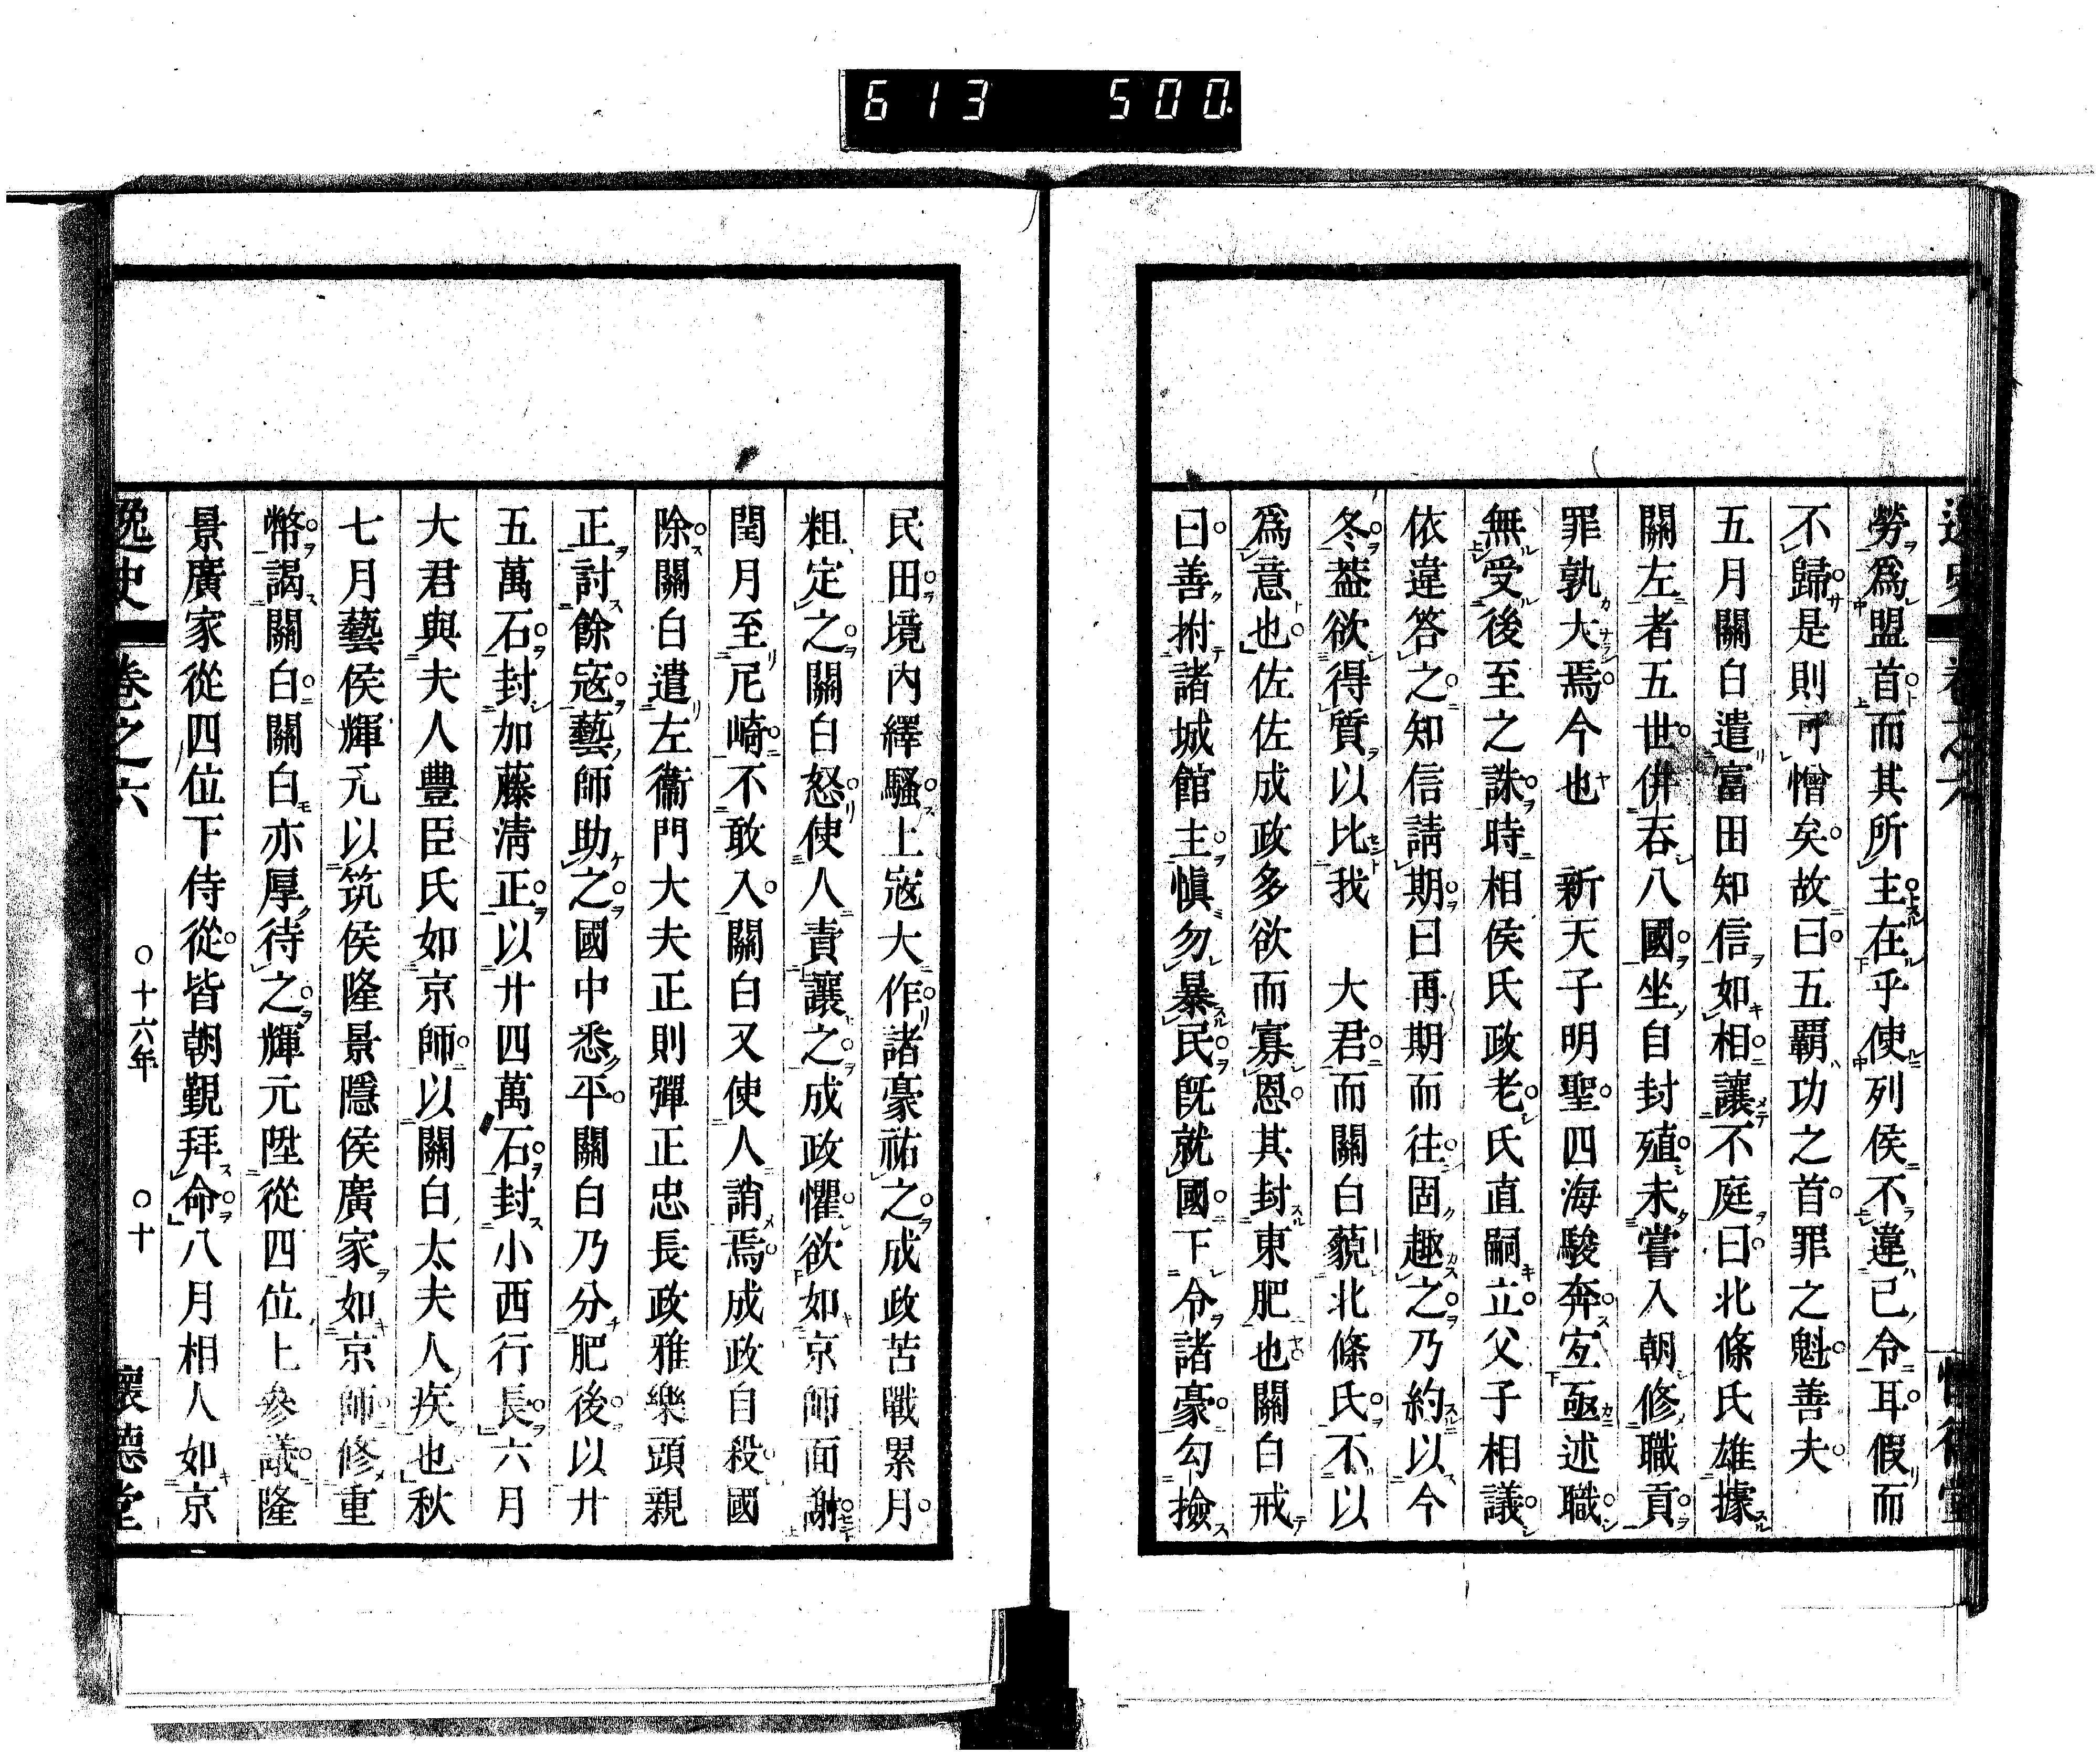 613 500
逸史 卷之六 懷德堂
勞爲盟首而其所主在乎使列侯不違己令耳假而
不歸是則可憎矣故曰五覇功之首罪之魁善夫
五月關白遣富田知信如相讓不庭曰北條氏雄據
關左者五世併吞八國坐自封殖未嘗入朝修職貢
罪孰大焉今也 新天子明聖四海駿奔宐亟述職
無受後至之誅時相侯氏政老氏直嗣立父子相議
依違答之知信請期曰再期而往固趣之乃約以今
冬葢欲得質以比我 大君而關白藐北條氏不以
爲意也佐佐成政多欲而寡恩其封東肥也關白戒
曰善拊諸城館主愼勿暴民既就國下令諸豪勾撿
民田境内繹騷上寇大作諸豪祐之成政苦戰累月
粗定之關白怒使人責讓之成政懼欲如京師面謝
閏月至尼崎不敢入關白又使人誚焉成政自殺國
除關白遣左衞門大夫正則彈正忠長政雅樂頭親
正討餘寇藝師助之國中悉平關白乃分肥後以廿
五萬石封加藤淸正以廿四萬石封小西行長六月
大君與夫人豐臣氏如京師以關白太夫人疾也秋
七月藝侯輝元以筑侯隆景隱侯廣家如京師修重
幣謁關白關白亦厚待之輝元陞從四位上參議隆
景廣家從四位下侍從皆朝覲拜命八月相人如京
逸史 卷之六 〇十六年 〇十 懷德堂